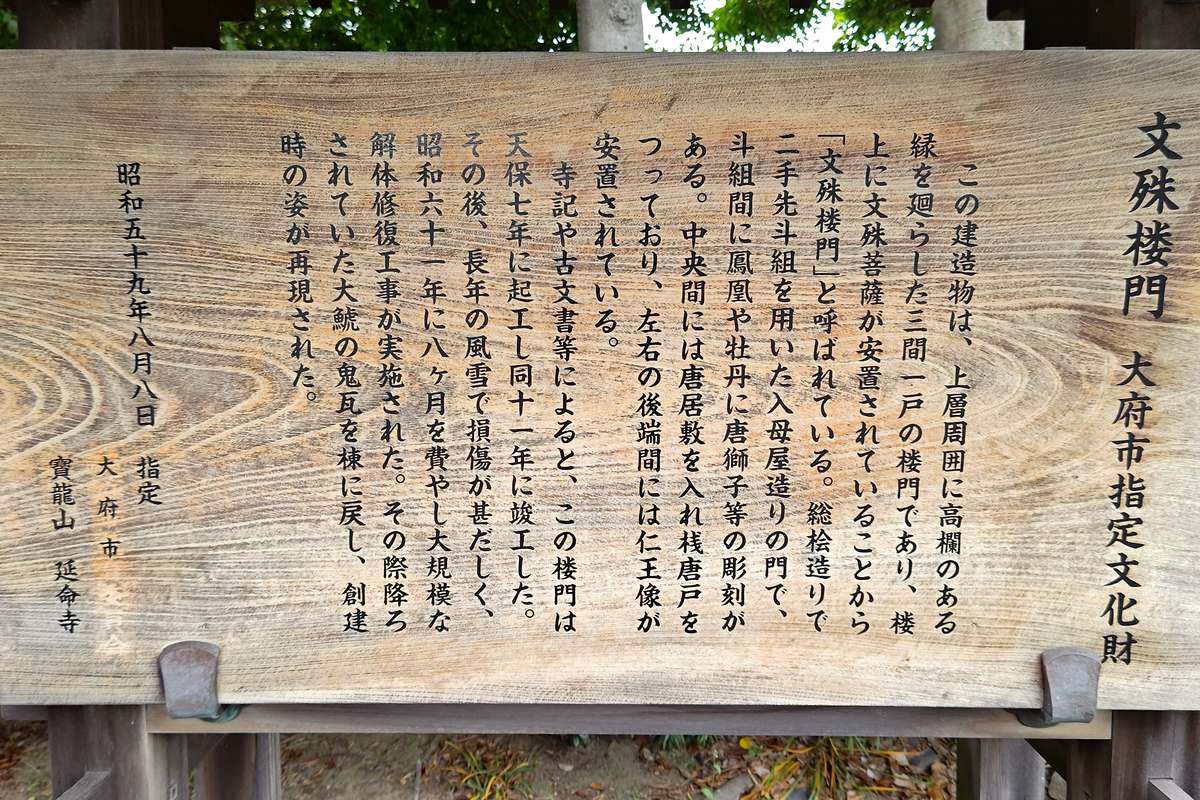 文殊楼門　大府市指定文化財
この建造物は、上層周囲に高欄のある
縁を廻らした三間一戸の楼門であり、楼
上に文殊菩薩が安置されていることから
「文殊楼門」と呼ばれている。総桧造りで
二手先斗組を用いた入母屋造りの門で、
斗組間に鳳凰や牡丹に唐獅子等の彫刻が
ある。中央間には唐居敷を入れ桟唐戸を
つっており、左右の後端間には仁王像が
安置されている。
寺記や古文書等によると、この楼門は
天保七年に起工し同十一年に竣工した。
その後、長年の風雪で損傷が甚だしく、
昭和六十一年に八ヶ月を費やし大規模な
解体修復工事が実施された。その際降ろ
されていた大鯱の鬼瓦を棟に戻し、創建
時の姿が再現された。
昭和五十九年八月八日　指定
大府市
寶龍山　延命寺